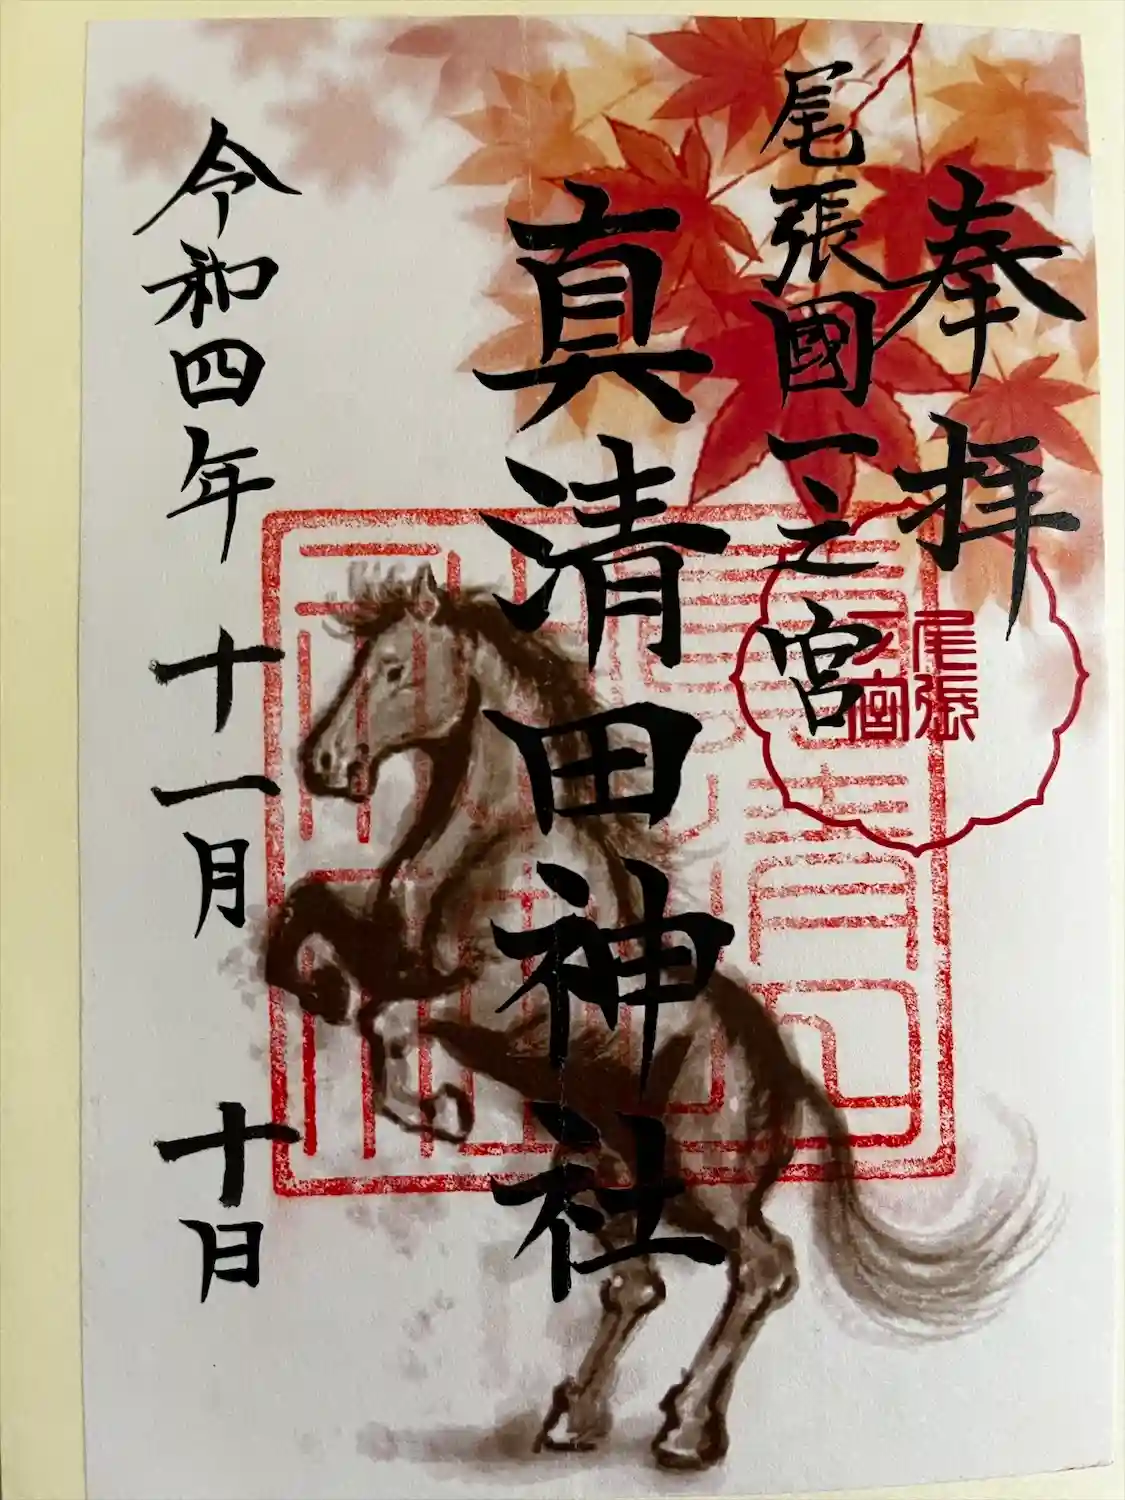 奉拝
尾張國一之宮
尾張
一宮
真清田神社
令和四年十一月十日